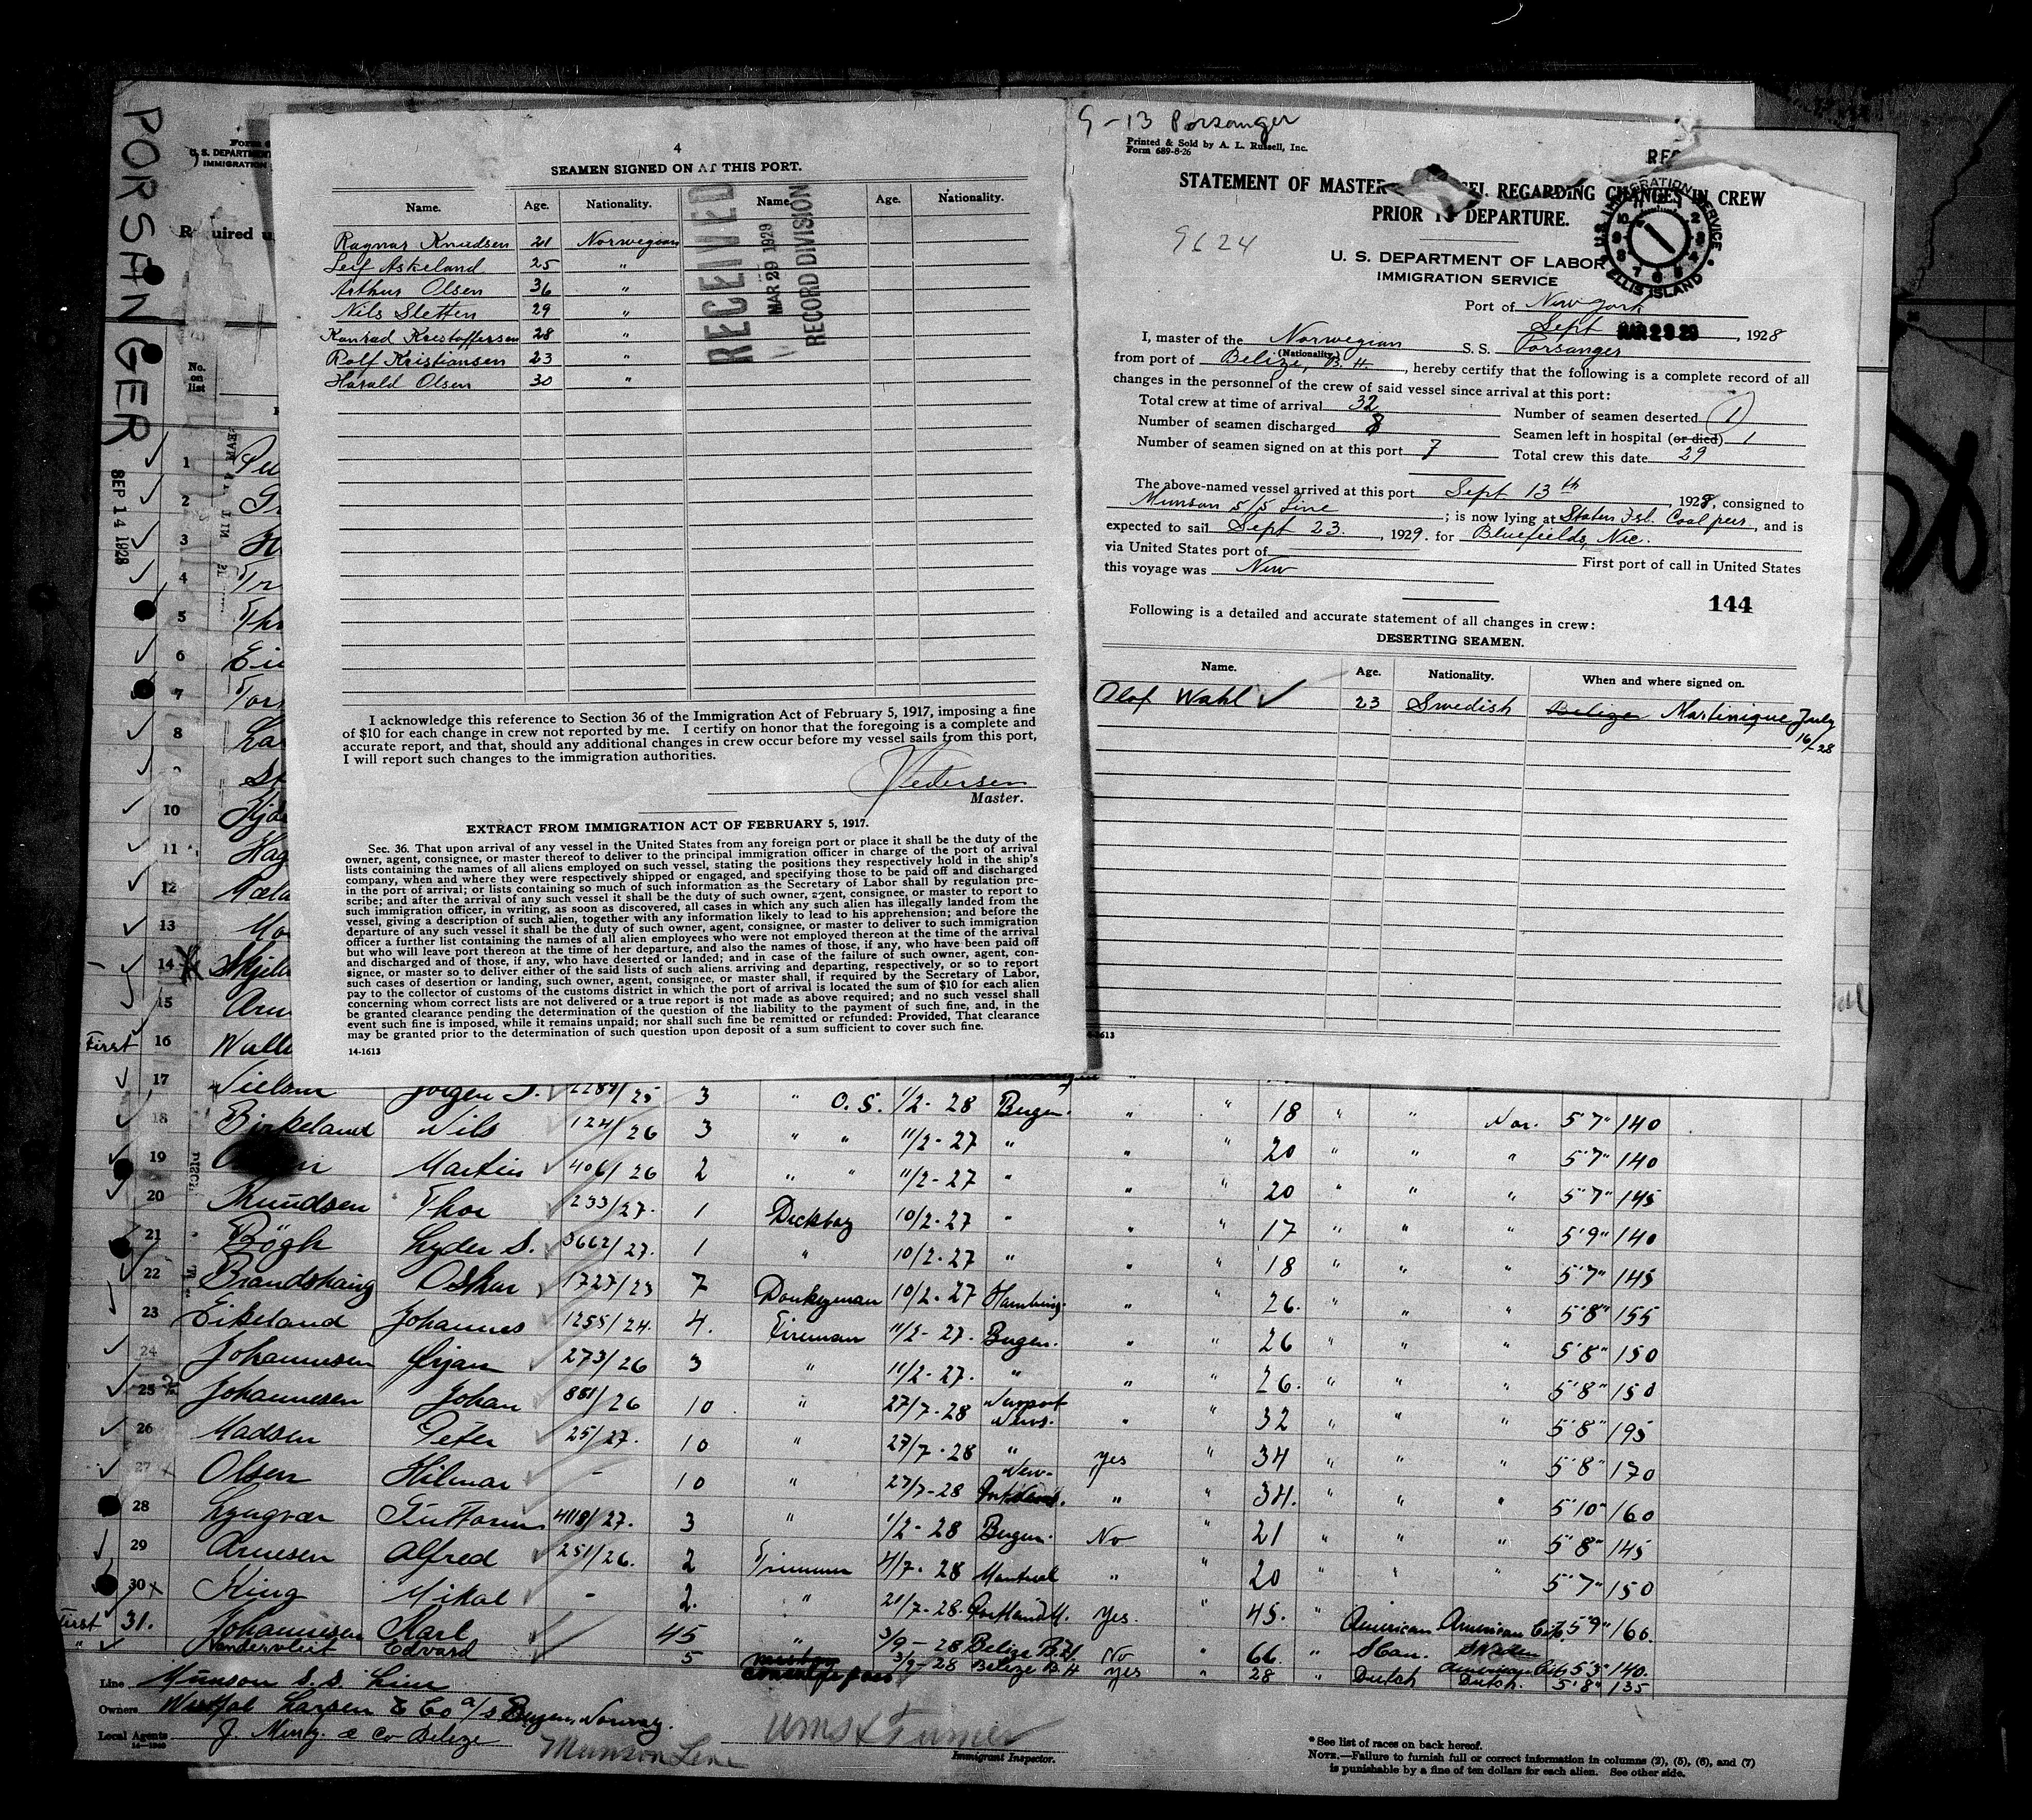 PORSANGER
SEP 14 1928
Form
U. S. DEPARTMENT
IMMIGRATION
No. on list
4
SEAMEN SIGNED ON AT THIS PORT.
Name. Age. Nationality. Name. Age. Nationality.
Ragnar Knudsen 21 Norwegian
Leif Askeland 25 "
Arthur Olsen 36 "
Nils Sletten 29 "
Konrad Kristoffersen 28 "
Rolf Kristiansen 23 "
Harald Olsen 30 "
RECEIVED
MAR 29 1929
RECORD DIVISION
I acknowledge this reference to Section 36 of the Immigration Act of February 5, 1917, imposing a fine
of $10 for each change in crew not reported by me. I certify on honor that the foregoing is a complete and
accurate report, and that, should any additional changes in crew occur before my vessel sails from this port,
I will report such changes to the immigration authorities.
Pedersen
Master.
EXTRACT FROM IMMIGRATION ACT OF FEBRUARY 5, 1917.
Sec. 36. That upon arrival of any vessel in the United States from any foreign port or place it shall be the duty of the
owner, agent, consignee, or master thereof to deliver to the principal immigration officer in charge of the port of arrival
lists containing the names of all aliens employed on such vessel, stating the positions they respectively hold in the ship's
company, when and where they were respectively shipped or engaged, and specifying those to be paid off and discharged
in the port of arrival; or lists containing so much of such information as the Secretary of Labor shall by regulation pre-
scribe; and after the arrival of any such vessel it shall be the duty of such owner, agent, consignee, or master to report to
such immigration officer, in writing, as soon as discovered, all cases in which any such alien has illegally landed from the
vessel, giving a description of such alien, together with any information likely to lead to his apprehension; and before the
departure of any such vessel it shall be the duty of such owner, agent, consignee, or master to deliver to such immigration
officer a further list containing the names of all alien employees who were not employed thereon at the time of the arrival
but who will leave port thereon at the time of her departure, and also the names of those, if any, who have been paid off
and discharged and of those, if any, who have deserted or landed; and in case of the failure of such owner, agent, con-
signee, or master so to deliver either of the said lists of such aliens arriving and departing, respectively, or so to report
such cases of desertion or landing, such owner, agent, consignee, or master shall, if required by the Secretary of Labor,
pay to the collector of customs of the customs district in which the port of arrival is located the sum of $10 for each alien
concerning whom correct lists are not delivered or a true report is not made as above required; and no such vessel shall
be granted clearance pending the determination of the question of the liability to the payment of such fine, and, in the
event such fine is imposed, while it remains unpaid; nor shall such fine be remitted or refunded: Provided, That clearance
may be granted prior to the determination of such question upon deposit of a sum sufficient to cover such fine.
14-1613
9-13 Porsanger
Printed & Sold by A. L. Russell, Inc.
Form 689-8-26
STATEMENT OF MASTER REGARDING CHANGES IN CREW
PRIOR TO DEPARTURE.
9624
U. S. DEPARTMENT OF LABOR
IMMIGRATION SERVICE
U.S. IMMIGRATION SERVICE ELLIS ISLAND
Port of New York
Sept MAR 29 29, 1928
I, master of the Norwegian S. S. Porsanger
(Nationality.)
from port of Belize, B. H., hereby certify that the following is a complete record of all
changes in the personnel of the crew of said vessel since arrival at this port:
Total crew at time of arrival 32 Number of seamen deserted 1
Number of seamen discharged 8 Seamen left in hospital (or died) 1
Number of seamen signed on at this port 7 Total crew this date 29
The above-named vessel arrived at this port Sept 13th 1928, consigned to
Munson S/S Line; is now lying at Staten Isl. Coal pier, and is
expected to sail Sept 23., 1929. for Bluefields, Nic.
via United States port of First port of call in United States
this voyage was New
144
Following is a detailed and accurate statement of all changes in crew:
DESERTING SEAMEN.
Name. Age. Nationality. When and where signed on.
Olaf Wahl ✓ 23 Swedish Belize Martinique July 16/28
1
2
3
4
5
6
7
8
10
11
12
13
14
15
First 16
17 Jörgen S. 2289/25 3 " O. S. 1/2-28 Bergen. " " 18 " " Nor. 5'7" 140
18 Birkeland Nils 124/26 3 " " 11/2-27 " " " 20 " " " 5'7" 140
19 Martin 406/26 2 " " 11/2-27 " " " 20 " " " 5'7" 145
20 Knudsen Thor 233/27. 1 Deckboy 10/2-27 " " " 17 " " " 5'9" 140
21 Bøgh Lyder S. 3662/27. 1 " 10/2-27 " " " 18 " " " 5'7" 145
22 Brandshaug Oskar 1727/23 7 Donkeyman 10/2-27 Hamburg. " " 26. " " " 5'8" 155
23 Eikeland Johannes 1255/24. 4. Fireman 11/2-27. Bergen. " " 26 " " " 5'8" 150
24 Johannesen Ørjan 273/26 3 " 11/2-27. " " " 26. " " " 5'8" 150
25 Johannesen Johan 881/26 10 " 27/7-28 Newport News. " " 32 " " " 5'8" 195
26 Madsen Peter 25/27. 10 " 27/7-28 " yes " 34 " " " 5'8" 170
27 Olsen Hilmar - 10 " 27/7-28 " " 34. " " " 5'10" 160
28 Lyngvær Guttorm 4118/27. 3 " 1/2-28 Bergen. No " 21 " " " 5'8" 145
29 Arnesen Alfred 251/26. 2 Trimmer 4/7-28 Montreal " " 20 " " " 5'7" 150
30 King Mikal - 2. " 21/7-28. Yes. " 45. " American American Cit. 5'9" 160.
First 31. Johannesen Karl 45 " 3/9-28 Belize B.H. No " 66. " Scan. Sweden American Cit. 5'5" 140.
" Vandervliet Edvard 5 3/9-28 Belize B.H yes " 28 " Dutch Dutch. 5'8" 135
Line Munson S. S. Line
Owners Westfal Larsen & Co a/s Bergen, Norway.
Local Agents & Co Belize
14-1240
Munson Line
Immigrant Inspector.
* See list of races on back hereof.
NOTE.—Failure to furnish full or correct information in columns (2), (5), (6), and (7)
is punishable by a fine of ten dollars for each alien. See other side.